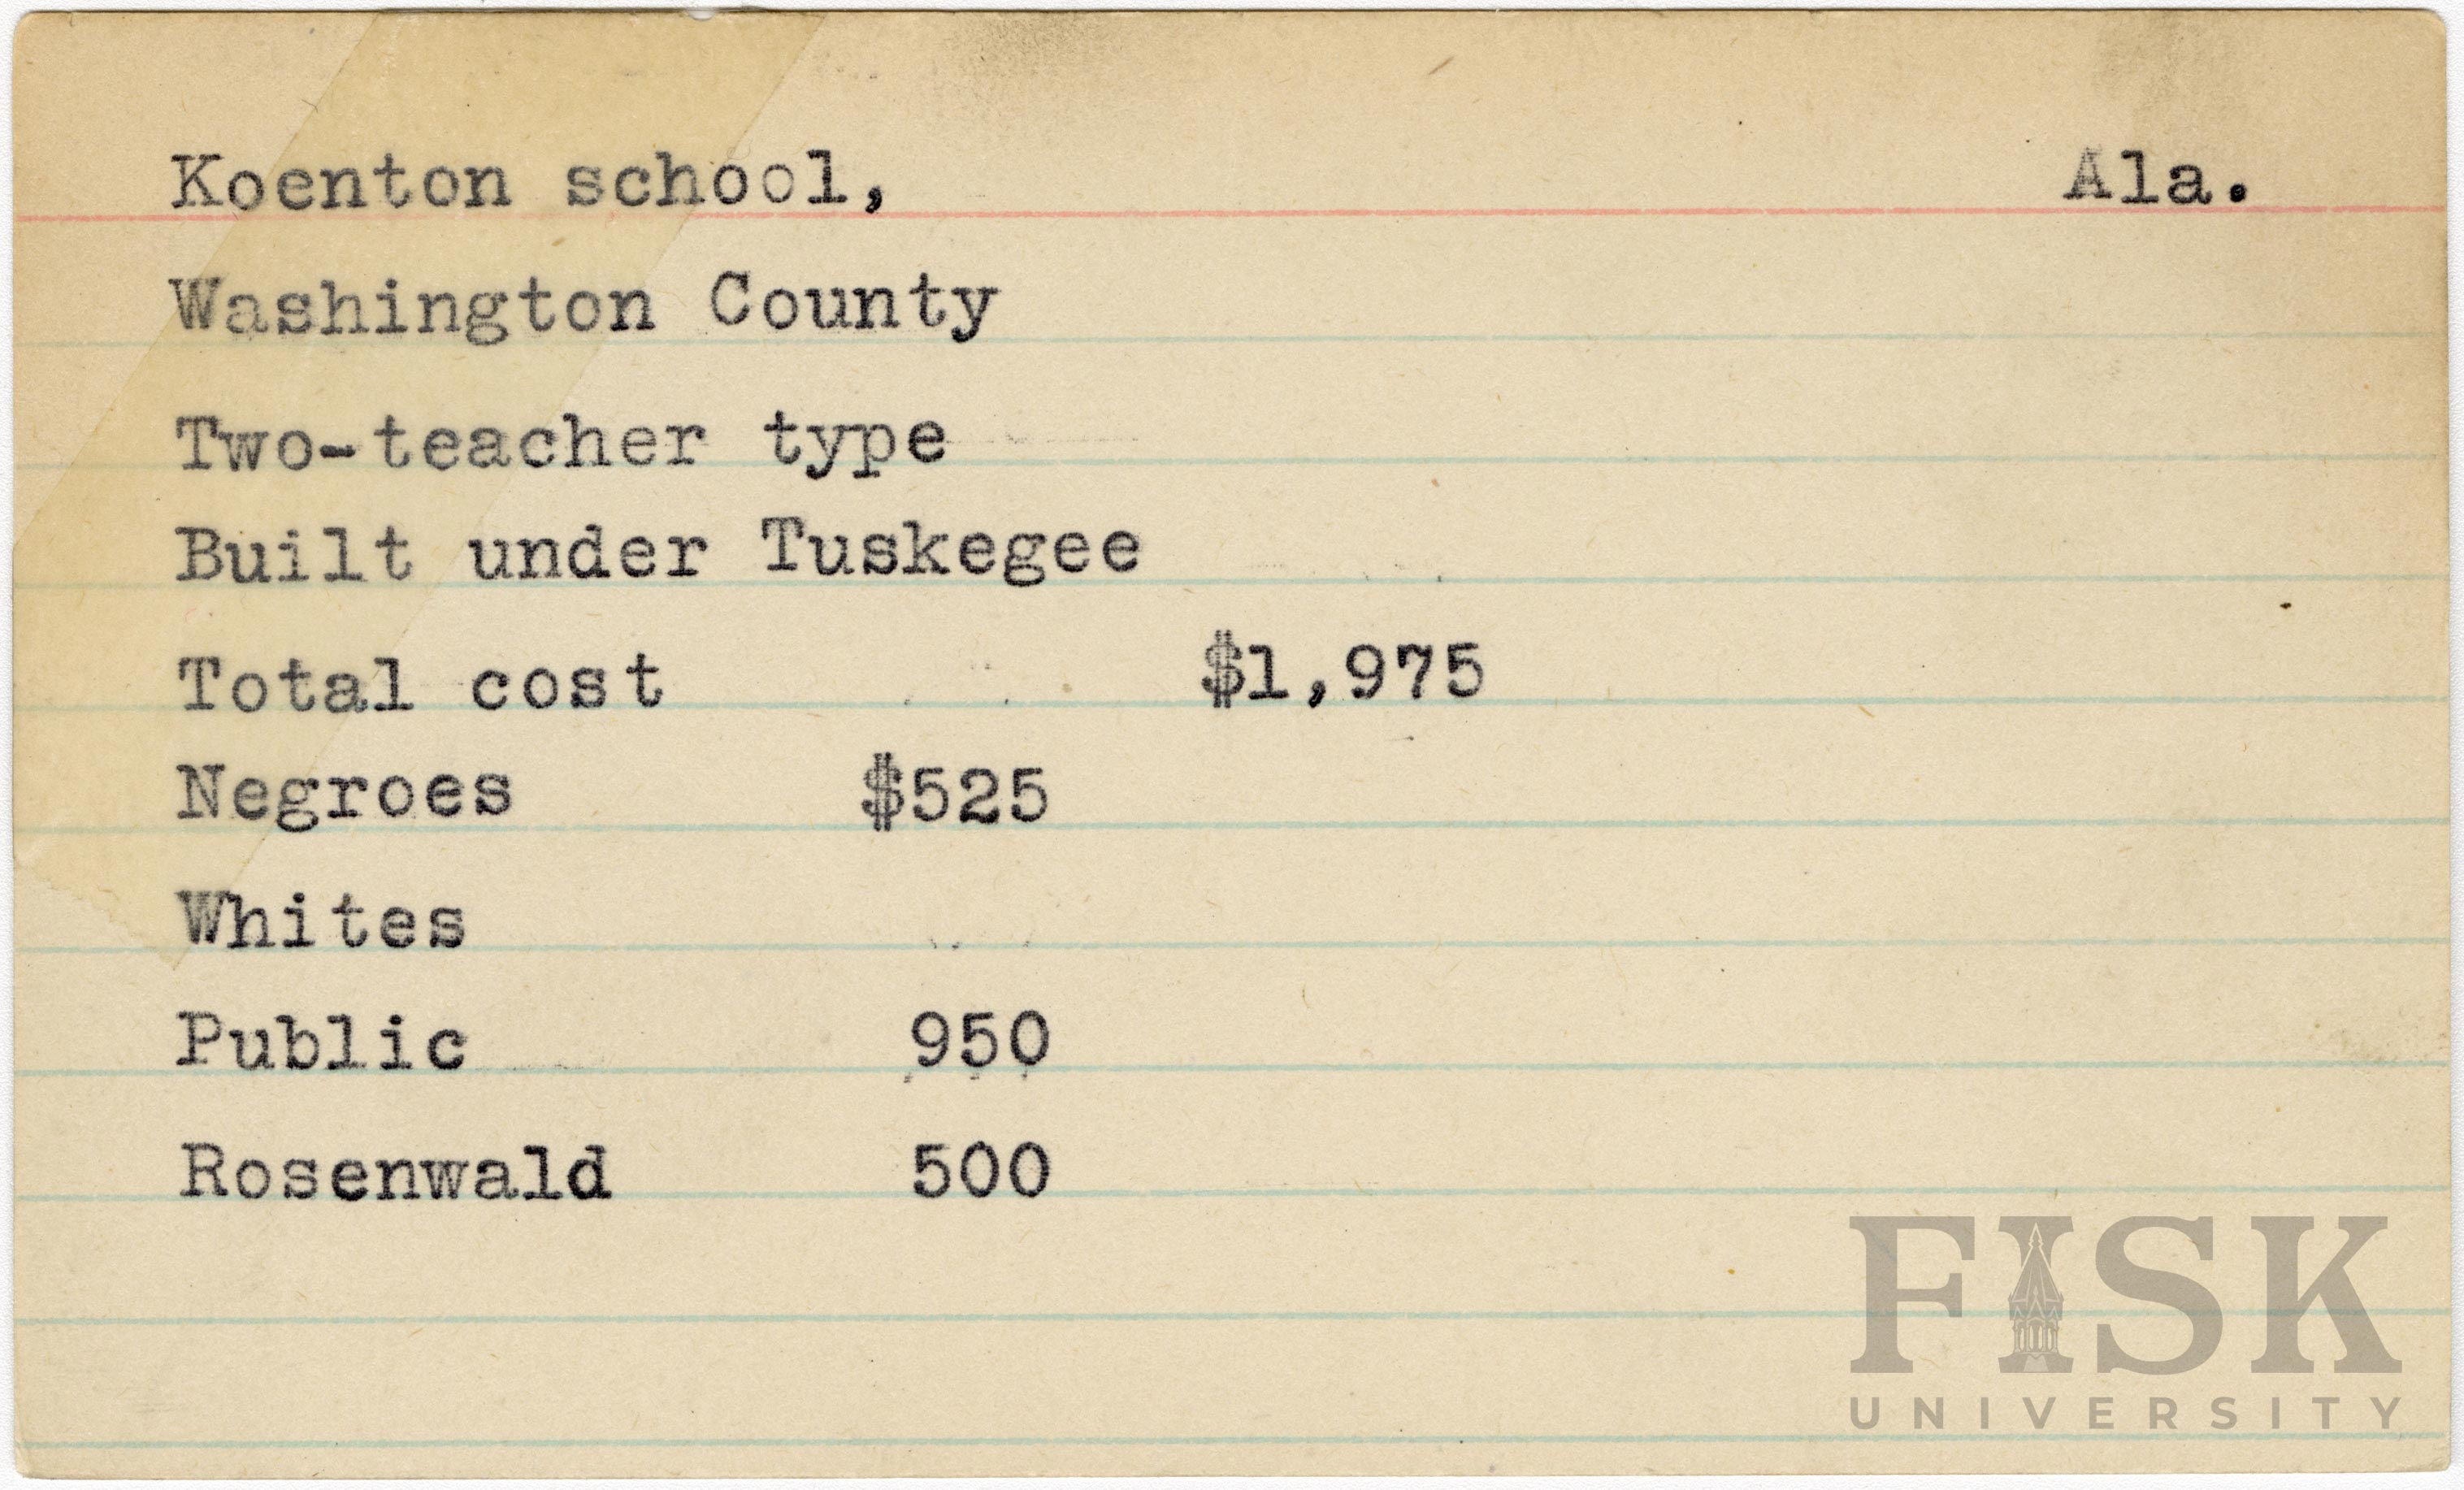 Koenton school, Ala.
Washington County
Two-teacher type
Built under Tuskegee
Total cost $1,975
Negroes $525
Whites
Public 950
Rosenwald 500
FISK
UNIVERSITY